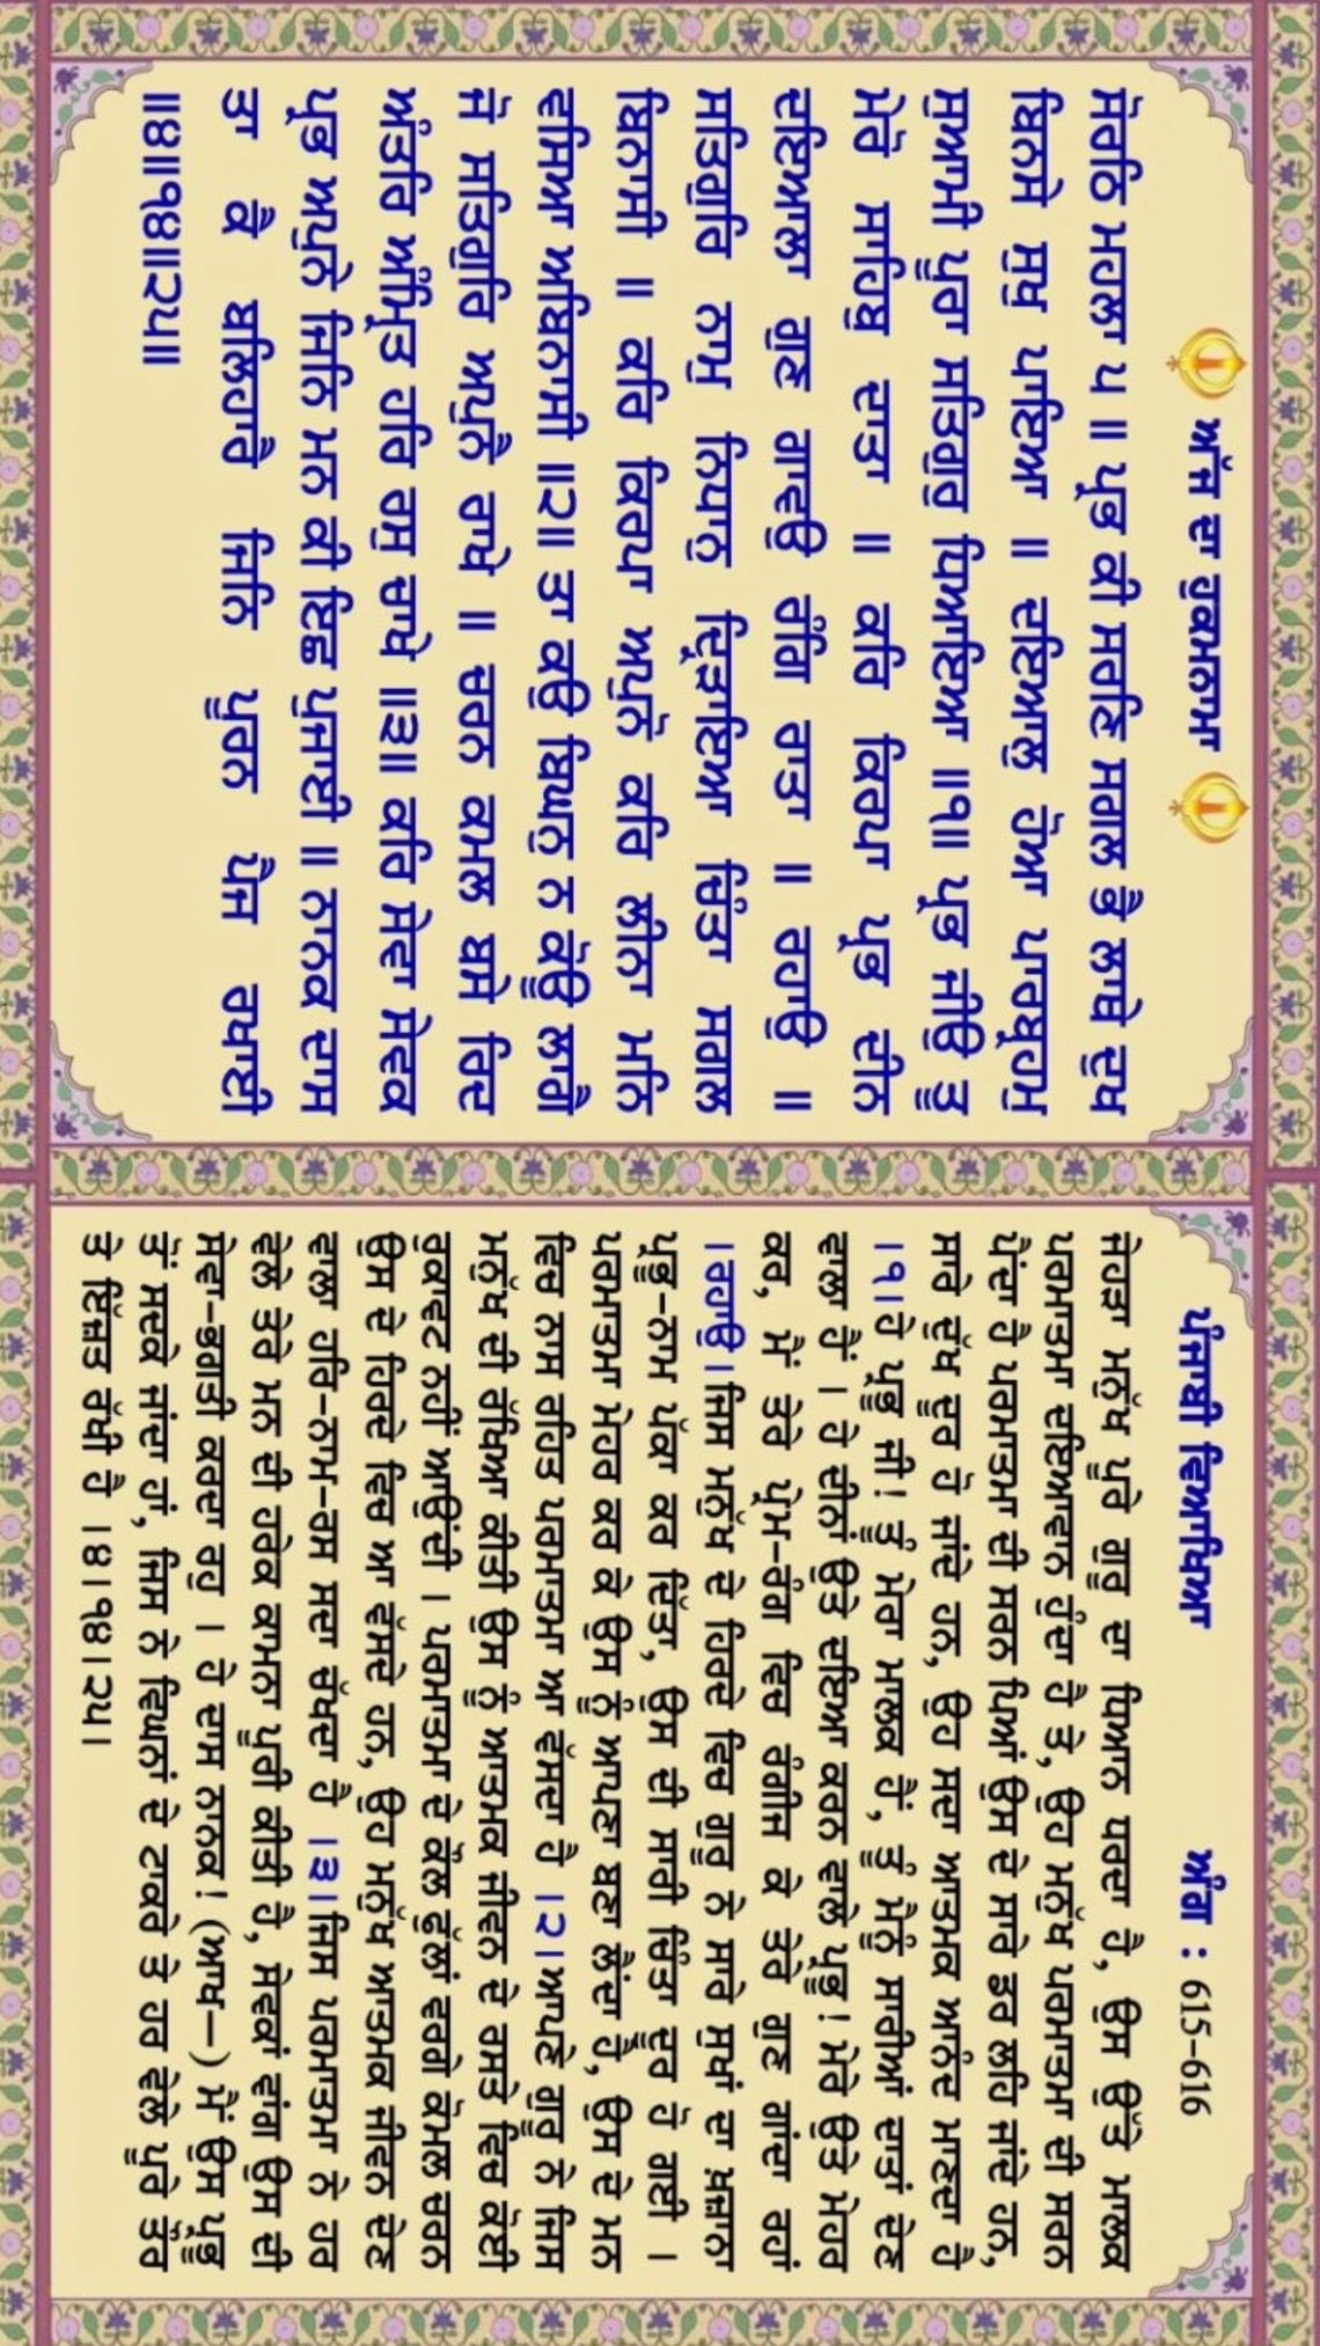 ਅੱਜ ਦਾ ਹੁਕਮਨਾਮਾ
ਸੋਰਠਿ ਮਹਲਾ ੫ ॥ ਪ੍ਰਭ ਕੀ ਸਰਣਿ ਸਗਲ ਭੈ ਲਾਥੇ ਦੁਖ
ਬਿਨਸੇ ਸੁਖੁ ਪਾਇਆ ॥ ਦਇਆਲੁ ਹੋਆ ਪਾਰਬ੍ਰਹਮੁ
ਸੁਆਮੀ ਪੂਰਾ ਸਤਿਗੁਰੁ ਧਿਆਇਆ ॥੧॥ ਪ੍ਰਭ ਜੀਉ ਤੂ
ਮੇਰੋ ਸਾਹਿਬੁ ਦਾਤਾ ॥ ਕਰਿ ਕਿਰਪਾ ਪ੍ਰਭ ਦੀਨ
ਦਇਆਲਾ ਗੁਣ ਗਾਵਉ ਰੰਗਿ ਰਾਤਾ ॥ ਰਹਾਉ ॥
ਸਤਿਗੁਰਿ ਨਾਮੁ ਨਿਧਾਨੁ ਦ੍ਰਿੜਾਇਆ ਚਿੰਤਾ ਸਗਲ
ਬਿਨਾਸੀ ॥ ਕਰਿ ਕਿਰਪਾ ਅਪੁਨੋ ਕਰਿ ਲੀਨਾ ਮਨਿ
ਵਸਿਆ ਅਬਿਨਾਸੀ ॥੨॥ ਤਾ ਕਉ ਬਿਘਨੁ ਨ ਕੋਊ ਲਾਗੈ
ਜੋ ਸਤਿਗੁਰਿ ਅਪੁਨੈ ਰਾਖੇ ॥ ਚਰਨ ਕਮਲ ਬਸੇ ਰਿਦ
ਅੰਤਰਿ ਅੰਮ੍ਰਿਤ ਹਰਿ ਰਸੁ ਚਾਖੇ ॥੩॥ ਕਰਿ ਸੇਵਾ ਸੇਵਕ
ਪ੍ਰਭ ਅਪੁਨੇ ਜਿਨਿ ਮਨ ਕੀ ਇਛ ਪੁਜਾਈ ॥ ਨਾਨਕ ਦਾਸ
ਤਾ ਕੈ ਬਲਿਹਾਰੈ ਜਿਨਿ ਪੂਰਨ ਪੈਜ ਰਖਾਈ
॥੪॥੧੪॥੨੫॥
ਪੰਜਾਬੀ ਵਿਆਖਿਆ ਅੰਗ : 615-616
ਜੇਹੜਾ ਮਨੁੱਖ ਪੂਰੇ ਗੁਰੂ ਦਾ ਧਿਆਨ ਧਰਦਾ ਹੈ, ਉਸ ਉੱਤੇ ਮਾਲਕ
ਪਰਮਾਤਮਾ ਦਇਆਵਾਨ ਹੁੰਦਾ ਹੈ ਤੇ, ਉਹ ਮਨੁੱਖ ਪਰਮਾਤਮਾ ਦੀ ਸਰਨ
ਪੈਂਦਾ ਹੈ ਪਰਮਾਤਮਾ ਦੀ ਸਰਨ ਪਿਆਂ ਉਸ ਦੇ ਸਾਰੇ ਡਰ ਲਹਿ ਜਾਂਦੇ ਹਨ,
ਸਾਰੇ ਦੁੱਖ ਦੂਰ ਹੋ ਜਾਂਦੇ ਹਨ, ਉਹ ਸਦਾ ਆਤਮਕ ਆਨੰਦ ਮਾਣਦਾ ਹੈ
।੧।ਹੇ ਪ੍ਰਭੂ ਜੀ! ਤੂੰ ਮੇਰਾ ਮਾਲਕ ਹੈਂ, ਤੂੰ ਮੈਨੂੰ ਸਾਰੀਆਂ ਦਾਤਾਂ ਦੇਣ
ਵਾਲਾ ਹੈਂ । ਹੇ ਦੀਨਾਂ ਉਤੇ ਦਇਆ ਕਰਨ ਵਾਲੇ ਪ੍ਰਭੂ! ਮੇਰੇ ਉਤੇ ਮੇਹਰ
ਕਰ, ਮੈਂ ਤੇਰੇ ਪ੍ਰੇਮ-ਰੰਗ ਵਿਚ ਰੰਗੀਜ ਕੇ ਤੇਰੇ ਗੁਣ ਗਾਂਦਾ ਰਹਾਂ
।ਰਹਾਉ।ਜਿਸ ਮਨੁੱਖ ਦੇ ਹਿਰਦੇ ਵਿਚ ਗੁਰੂ ਨੇ ਸਾਰੇ ਸੁਖਾਂ ਦਾ ਖ਼ਜ਼ਾਨਾ
ਪ੍ਰਭੂ-ਨਾਮ ਪੱਕਾ ਕਰ ਦਿੱਤਾ, ਉਸ ਦੀ ਸਾਰੀ ਚਿੰਤਾ ਦੂਰ ਹੋ ਗਈ ।
ਪਰਮਾਤਮਾ ਮੇਹਰ ਕਰ ਕੇ ਉਸ ਨੂੰ ਆਪਣਾ ਬਣਾ ਲੈਂਦਾ ਹੈ, ਉਸ ਦੇ ਮਨ
ਵਿਚ ਨਾਸ ਰਹਿਤ ਪਰਮਾਤਮਾ ਆ ਵੱਸਦਾ ਹੈ ।੨।ਆਪਣੇ ਗੁਰੂ ਨੇ ਜਿਸ
ਮਨੁੱਖ ਦੀ ਰੱਖਿਆ ਕੀਤੀ ਉਸ ਨੂੰ ਆਤਮਕ ਜੀਵਨ ਦੇ ਰਸਤੇ ਵਿਚ ਕੋਈ
ਰੁਕਾਵਟ ਨਹੀਂ ਆਉਂਦੀ । ਪਰਮਾਤਮਾ ਦੇ ਕੌਲ ਫੁੱਲਾਂ ਵਰਗੇ ਕੋਮਲ ਚਰਨ
ਉਸ ਦੇ ਹਿਰਦੇ ਵਿਚ ਆ ਵੱਸਦੇ ਹਨ, ਉਹ ਮਨੁੱਖ ਆਤਮਕ ਜੀਵਨ ਦੇਣ
ਵਾਲਾ ਹਰਿ-ਨਾਮ-ਰਸ ਸਦਾ ਚੱਖਦਾ ਹੈ ।੩।ਜਿਸ ਪਰਮਾਤਮਾ ਨੇ ਹਰ
ਵੇਲੇ ਤੇਰੇ ਮਨ ਦੀ ਹਰੇਕ ਕਾਮਨਾ ਪੂਰੀ ਕੀਤੀ ਹੈ, ਸੇਵਕਾਂ ਵਾਂਗ ਉਸ ਦੀ
ਸੇਵਾ-ਭਗਤੀ ਕਰਦਾ ਰਹੁ । ਹੇ ਦਾਸ ਨਾਨਕ! (ਆਖ—) ਮੈਂ ਉਸ ਪ੍ਰਭੂ
ਤੋਂ ਸਦਕੇ ਜਾਂਦਾ ਹਾਂ, ਜਿਸ ਨੇ ਵਿਘਨਾਂ ਦੇ ਟਾਕਰੇ ਤੇ ਹਰ ਵੇਲੇ ਪੂਰੇ ਤੌਰ
ਤੇ ਇੱਜ਼ਤ ਰੱਖੀ ਹੈ ।੪।੧੪।੨੫।